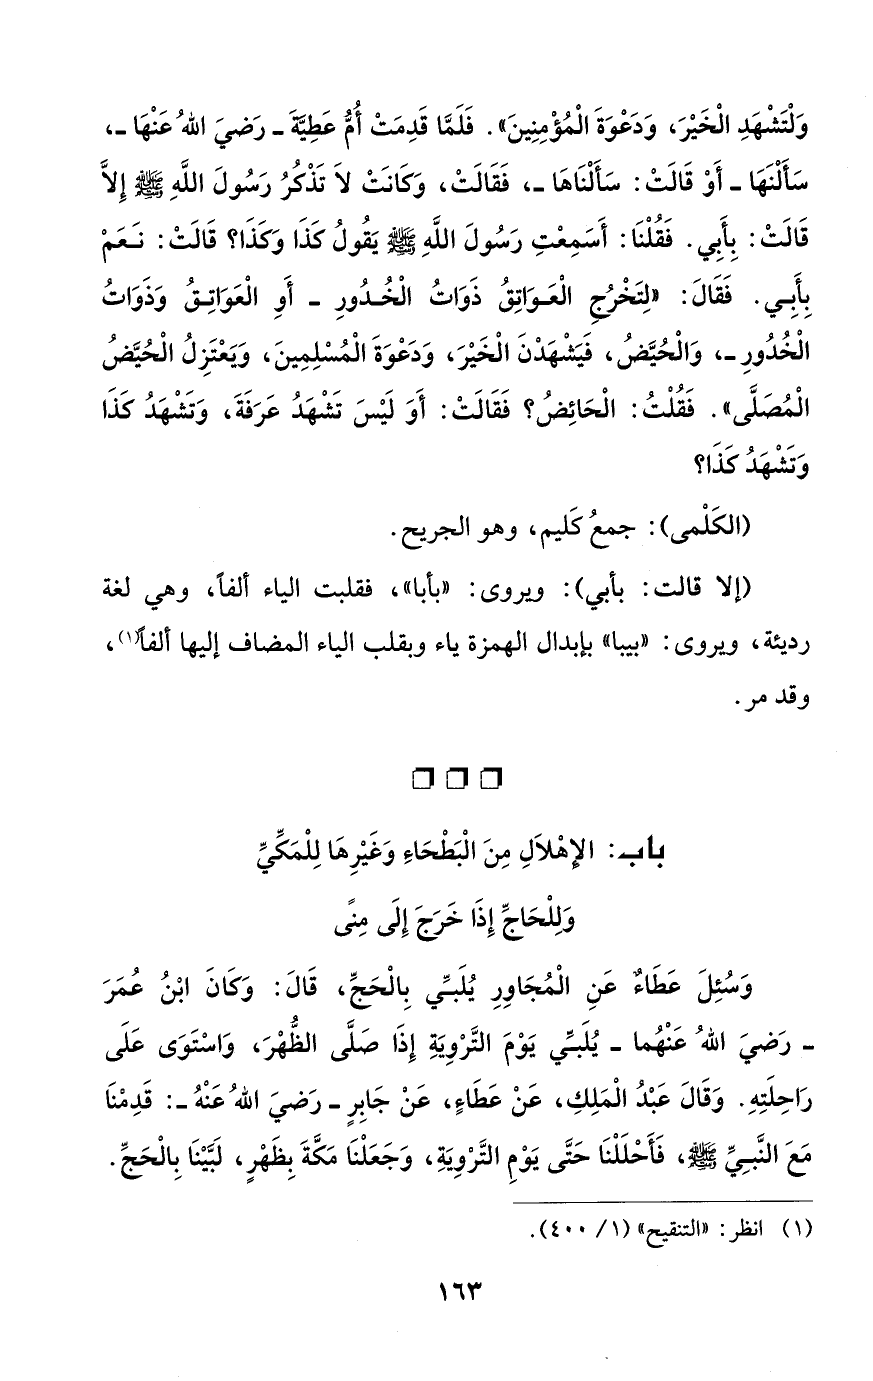 وَلْتَشْهَدِ الْخَيْرَ، وَدَعْوَةَ الْمُؤْمِنِينَ». فَلَمَّا قَدِمَتْ أُمُّ عَطِيَّةَ ـ رَضيَ اللهُ عَنْهَا ـ،
سَأَلْنَهَا ـ أَوْ قَالَتْ: سَأَلْنَاهَا ـ، فَقَالَتْ، وَكَانَتْ لاَ تَذْكُرُ رَسُولَ اللَّهِ ﷺ إِلاَّ
قَالَتْ: بِأَبِي. فَقُلْنَا: أَسَمِعْتِ رَسُولَ اللَّهِ ﷺ يَقُولُ كَذَا وَكَذَا؟ قَالَتْ: نَعَمْ
بِأَبِي. فَقَالَ: «لِتَخْرُجِ الْعَوَاتِقُ ذَوَاتُ الْخُدُورِ ـ أَوِ الْعَوَاتِقُ وَذَوَاتُ
الْخُدُورِ ـ، وَالْحُيَّضُ، فَيَشْهَدْنَ الْخَيْرَ، وَدَعْوَةَ الْمُسْلِمِينَ، وَيَعْتَزِلُ الْحُيَّضُ
الْمُصَلَّى». فَقُلْتُ: الْحَائِضُ؟ فَقَالَتْ: أَوَ لَيْسَ تَشْهَدُ عَرَفَةَ، وَتَشْهَدُ كَذَا
وَتَشْهَدُ كَذَا؟
(الكَلْمى): جمعُ كَليم، وهو الجريح.
(إلا قالت: بأبي): ويروى: «بأبا»، فقلبت الياء ألفاً، وهي لغة
رديئة، ويروى: «بيبا» بإبدال الهمزة ياء وبقلب الياء المضاف إليها ألفاً(١)،
وقد مر.
باب: الإِهْلاَلِ مِنَ الْبَطْحَاءِ وَغَيْرِهَا لِلْمَكِّيِّ
وَلِلْحَاجِّ إِذَا خَرَجَ إِلَى مِنًى
وَسُئِلَ عَطَاءٌ عَنِ الْمُجَاوِرِ يُلَبِّي بِالْحَجِّ، قَالَ: وَكَانَ ابْنُ عُمَرَ
ـ رَضيَ اللهُ عَنْهُما ـ يُلَبِّي يَوْمَ التَّرْوِيَةِ إِذَا صَلَّى الظُّهْرَ، وَاسْتَوَى عَلَى
رَاحِلَتِهِ. وَقَالَ عَبْدُ الْمَلِكِ، عَنْ عَطَاءٍ، عَنْ جَابِرٍ ـ رَضيَ اللهُ عَنْهُ ـ: قَدِمْنَا
مَعَ النَّبِيِّ ﷺ، فَأَحْلَلْنَا حَتَّى يَوْمِ التَّرْوِيَةِ، وَجَعَلْنَا مَكَّةَ بِظَهْرٍ، لَبَّيْنَا بِالْحَجِّ.
(١) انظر: «التنقيح» (١/ ٤٠٠).
١٦٣